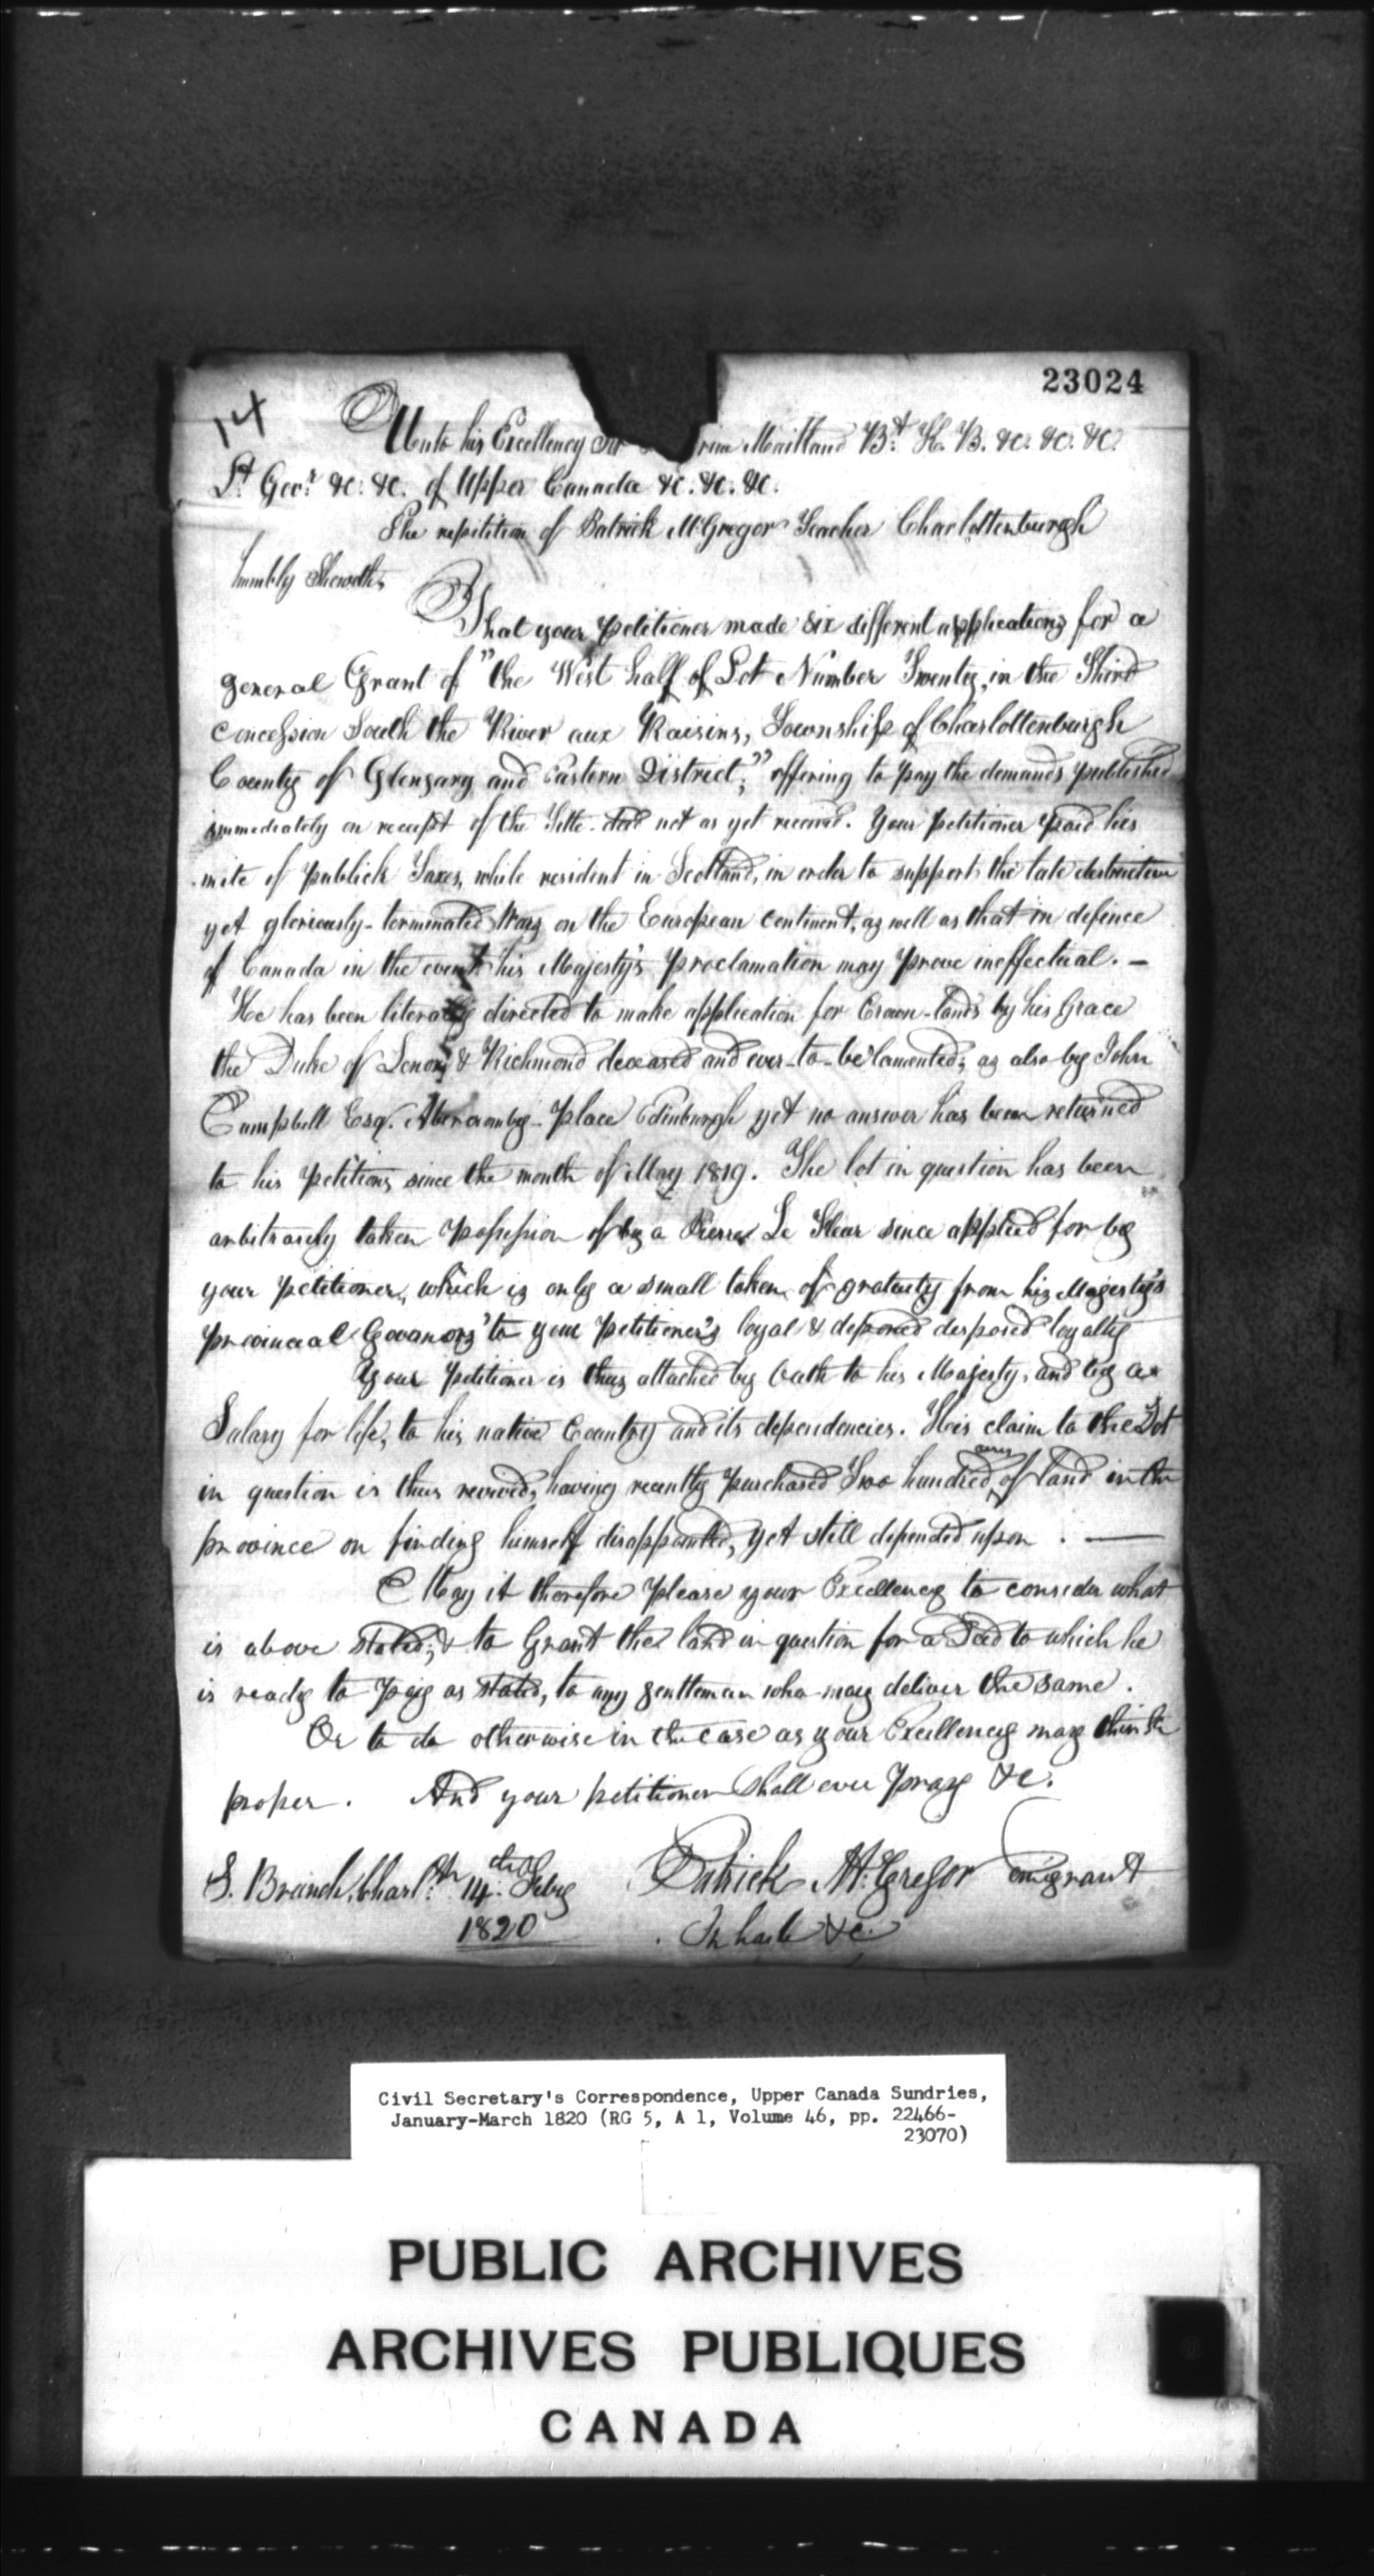 23024
14
Unto his Excellency Sir rine Maitland Bt. K. B. &c. &c. &c.
Lt. Govr. &c. &c. of Upper Canada &c. &c. &c.
The repetition of Patrick McGregor Teacher Charlottenburgh
humbly Sheweth,
That your petitioner made six different applications for a
general Grant of "the West half of Lot Number Twenty, in the Third
concession South the River aux Raisins, Township of Charlottenburgh
County of Glengary and Eastern District;" offering to pay the demands published
immediately on receipt of the Title-deed not as yet received. Your petitioner paid his
mite of publick Taxes, while resident in Scotland, in order to support the late destructive
yet gloriously-terminated Wars on the European continent, as well as that in defence
of Canada in the event his Majesty's proclamation may prove ineffectual. —
He has been literally directed to make application for Crown-lands by his Grace
the Duke of Lenox & Richmond deceased and ever-to-be lamented; as also by John
Campbell Esq. Abercromby-place Edinburgh yet no answer has been returned
to his petitions since the month of May 1819. The lot in question has been
arbitrarely taken possession of by a Pierre Le Flear since applied for by
your petitioner, which is only a small token of gratuity from his Majesty's
provincial Govanors' to your petitioner's loyal & deponed desposed loyalty
Your petitioner is thus attached by Oath to his Majesty, and by a
Salary for life, to his native Country and its dependencies. His claim to the Lot
in question is thus revived, having recently purchased Two hundred acres of land in the
province on finding himself disappointed, yet still depended upon . —
May it therefore please your Excellency to consider what
is above stated; & to Grant the land in question for a Deed to which he
is ready to pay as stated, to any gentleman who may deliver the same.
Or to do otherwise in the case as your Excellency may think
proper. And your petitioner shall ever pray &c.
S. Branch, Charl.th 14th Feby Patrick McGregor emigrant
1820 In haste &c.
Civil Secretary's Correspondence, Upper Canada Sundries,
January-March 1820 (RG 5, A 1, Volume 46, pp. 22466-
23070)
PUBLIC ARCHIVES
ARCHIVES PUBLIQUES
CANADA